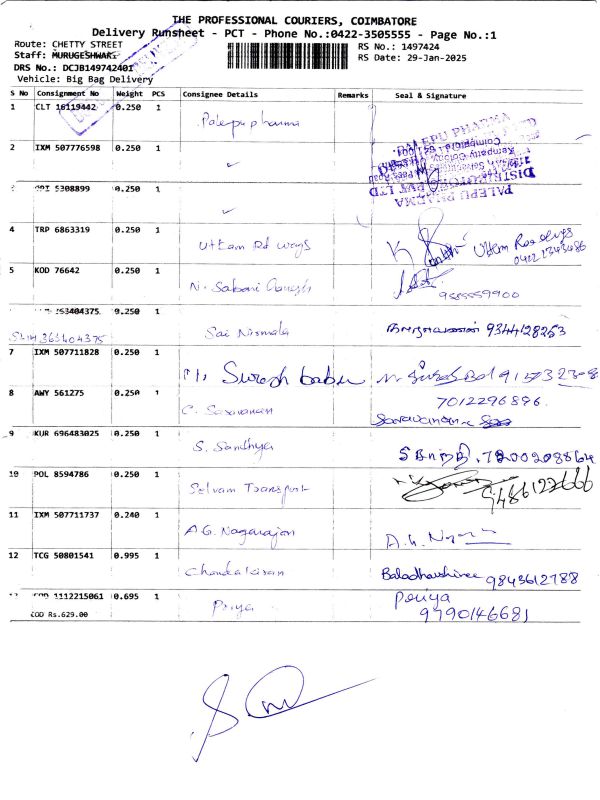 THE PROFESSIONAL COURIERS, COIMBATORE
Delivery Runsheet - PCT - Phone No.:0422-3505555 - Page No.:1
Route: CHETTY STREET
Staff: MURUGESHWARI
DRS No.: DCJB149742401
Vehicle: Big Bag Delivery
RS No.: 1497424
RS Date: 29-Jan-2025
S No Consignment No Weight PCS Consignee Details Remarks Seal & Signature
1 CLT 16119442 0.250 1 Palepu pharma
PALEPU PHARMA
DISTRIBUTORS PVT LTD
2 IXM 507776598 0.250 1
5308899 0.250 1
4 TRP 6863319 0.250 1 Uttam Rd ways Uttam Roadways
0422 2343486
5 KOD 76642 0.250 1 N. Sabari Ganesh
9555559900
363404375 0.250 1 Sai Nirmala 9344128253
SLM 363404375
7 IXM 507711828 0.250 1 Suresh babu
8 AWY 561275 0.250 1 C. Saravanan 7012296896
9 KUR 696483025 0.250 1 S. Sandhya 7200208864
10 POL 8594786 0.250 1 Selvam Transport 9486127666
11 IXM 507711737 0.240 1 A.G. Nagarajan
12 TCG 50801541 0.995 1 Chandakiran Baladharshinee 9843612788
13 COD 1112215061 0.695 1 Priya Priya
COD Rs.629.00 9790146681